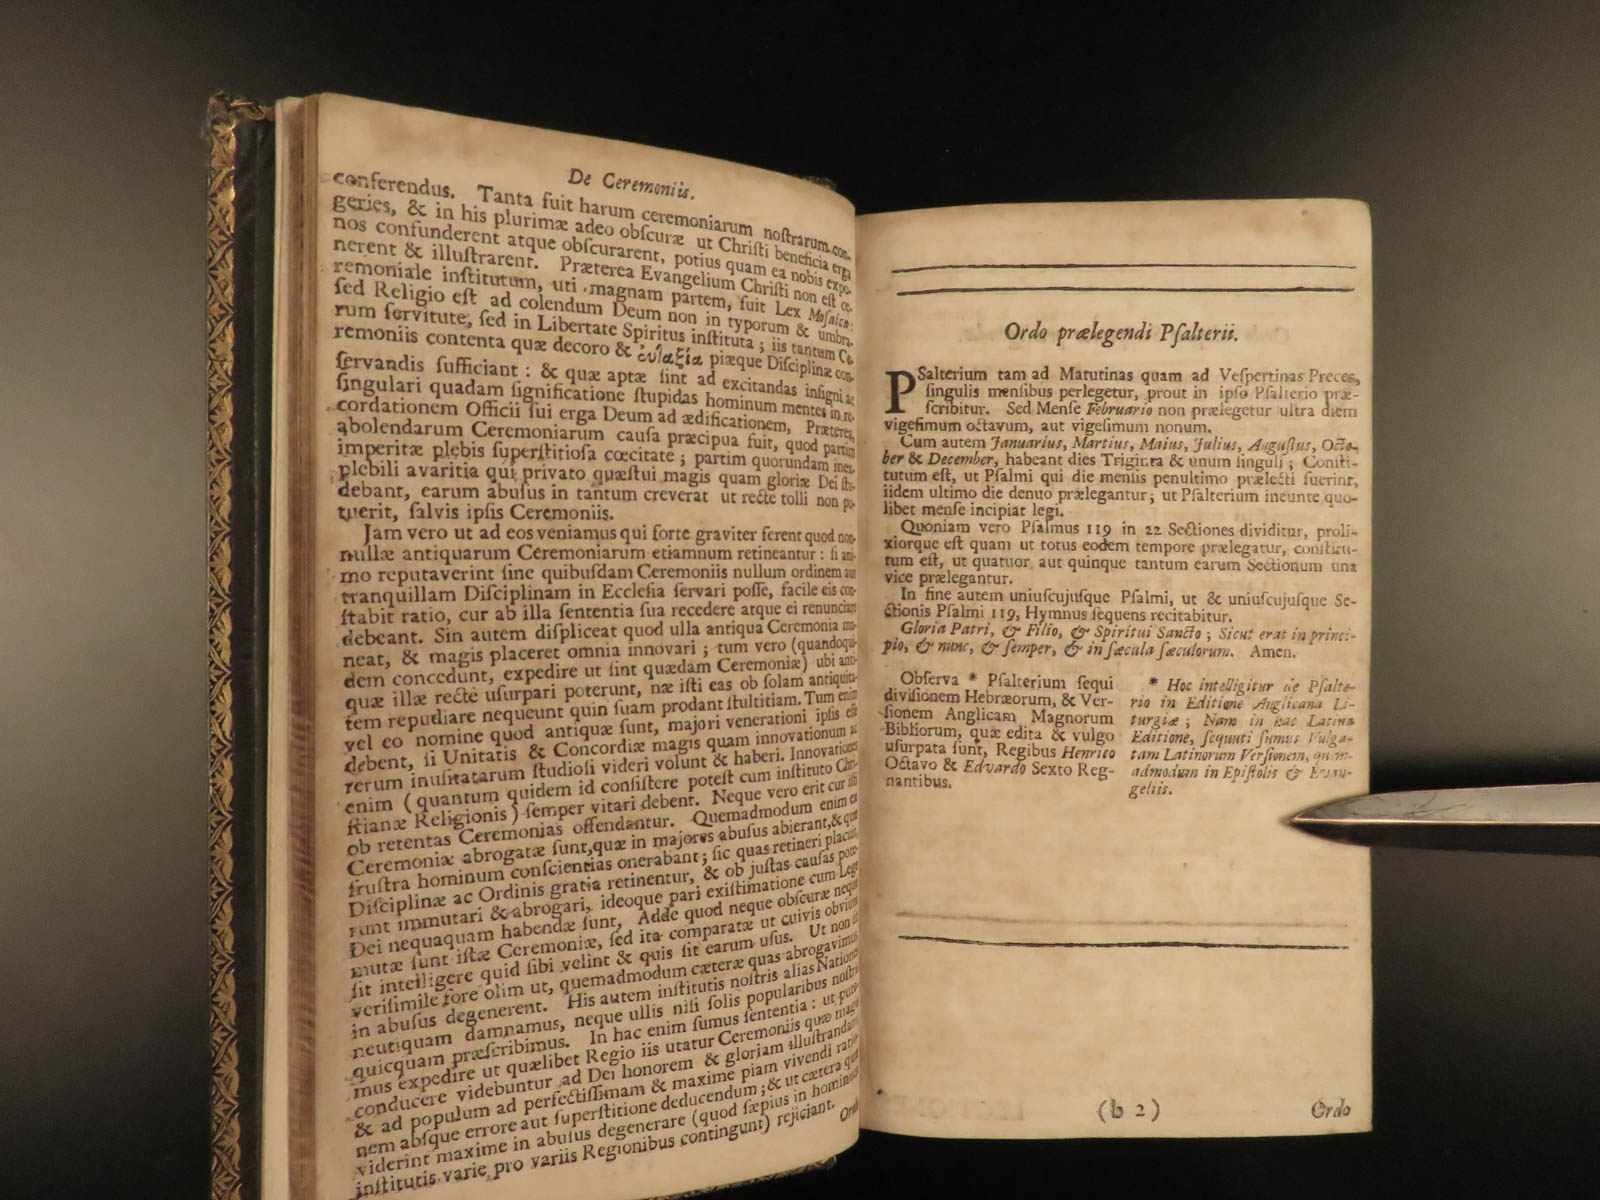 De Ceremoniis.
conferendus. Tanta fuit harum ceremoniarum noſtrarum con-
geries, & in his plurimæ adeo obſcuræ ut Chriſti beneficia erga
nos confunderent atque obſcurarent, potius quam ea nobis expo-
nerent & illuſtrarent. Præterea Evangelium Chriſti non eſt ce-
remoniale inſtitutum, uti magnam partem, fuit Lex Moſaica:
ſed Religio eſt ad colendum Deum non in typorum & umbra-
rum ſervitute, ſed in Libertate Spiritus inſtituta; iis tantum Ce-
remoniis contenta quæ decoro & ἐυλαξία piæque Diſciplinæ con-
ſervandis ſufficiant: & quæ aptæ ſint ad excitandas inſigni ac
ſingulari quadam ſignificatione ſtupidas hominum mentes in re-
cordationem Officii ſui erga Deum ad ædificationem, Præterea,
abolendarum Ceremoniarum cauſa præcipua fuit, quod partim
imperitæ plebis ſuperſtitioſa cœcitate; partim quorundam inex-
plebili avaritia qui privato quæſtui magis quam gloriæ Dei ſtu-
debant, earum abuſus in tantum creverat ut recte tolli non po-
tuerit, ſalvis ipſis Ceremoniis.
Jam vero ut ad eos veniamus qui forte graviter ferent quod non-
nullæ antiquarum Ceremoniarum etiamnum retineantur: ſi ani-
mo reputaverint ſine quibuſdam Ceremoniis nullum ordinem aut
tranquillam Diſciplinam in Eccleſia ſervari poſſe, facile eis con-
ſtabit ratio, cur ab illa ſententia ſua recedere atque ei renunciare
debeant. Sin autem diſpliceat quod ulla antiqua Ceremonia ma-
neat, & magis placeret omnia innovari; tum vero (quandoqui-
dem concedunt, expedire ut ſint quædam Ceremoniæ) ubi anti-
quæ illæ recte uſurpari poterunt, næ iſti eas ob ſolam antiquita-
tem repudiare nequeunt quin ſuam prodant ſtultitiam. Tum enim
vel eo nomine quod antiquæ ſunt, majori venerationi ipſis eſſe
debent, ſi Unitatis & Concordiæ magis quam innovationum ac
rerum inuſitatarum ſtudioſi videri volunt & haberi. Innovationes
enim (quantum quidem id conſiſtere poteſt cum inſtituto Chri-
ſtianæ Religionis) ſemper vitari debent. Neque vero erit cur iſti
ob retentas Ceremonias offendantur. Quemadmodum enim eæ
Ceremoniæ abrogatæ ſunt, quæ in majores abuſus abierant, & quæ
fruſtra hominum conſcientias onerabant; ſic quas retineri placuit,
Diſciplinæ ac Ordinis gratia retinentur, & ob juſtas cauſas pote-
runt immutari & abrogari, ideoque pari exiſtimatione cum Lege
Dei nequaquam habendæ ſunt, Adde quod neque obſcuræ neque
mutæ ſunt iſtæ Ceremoniæ, ſed ita comparatæ ut cuivis obvium
ſit intelligere quid ſibi velint & quis ſit earum uſus. Ut non ſit
veriſimile fore olim ut, quemadmodum cæteræ quas abrogavimus
in abuſus degenerent. His autem inſtitutis noſtris alias Nationes
neutiquam damnamus, neque ullis niſi ſolis popularibus noſtris
quicquam præſcribimus. In hac enim ſumus ſententia: ut pute-
mus expedire ut quælibet Regio iis utatur Ceremoniis quæ magis
conducere videbuntur ad Dei honorem & gloriam illuſtrandam
& ad populum ad perfectiſſimam & maxime piam vivendi ratio-
nem abſque errore aut ſuperſtitione deducendum; & ut cætera quæ
viderint maxime in abuſus degenerare (quod ſæpius in hominum
inſtitutis varie pro variis Regionibus contingunt) rejiciant.
Ordo
Ordo prælegendi Pſalterii.
PSalterium tam ad Matutinas quam ad Veſpertinas Preces,
ſingulis menſibus perlegetur, prout in ipſo Pſalterio præ-
ſcribitur. Sed Menſe Februario non prælegetur ultra diem
vigeſimum octavum, aut vigeſimum nonum.
Cum autem Januarius, Martius, Maius, Julius, Auguſtus, Octo-
ber & December, habeant dies Triginta & unum ſinguli; Conſti-
tutum eſt, ut Pſalmi qui die menſis penultimo prælecti fuerint,
iidem ultimo die denuo prælegantur; ut Pſalterium ineunte quo-
libet menſe incipiat legi.
Quoniam vero Pſalmus 119 in 22 Sectiones dividitur, proli-
xiorque eſt quam ut totus eodem tempore prælegatur, conſtitu-
tum eſt, ut quatuor aut quinque tantum earum Sectionum una
vice prælegantur.
In fine autem uniuſcujuſque Pſalmi, ut & uniuſcujuſque Se-
ctionis Pſalmi 119, Hymnus ſequens recitabitur.
Gloria Patri, & Filio, & Spiritui Sancto; Sicut erat in princi-
pio, & nunc, & ſemper, & in ſæcula ſæculorum. Amen.
Obſerva * Pſalterium ſequi
diviſionem Hebræorum, & Ver-
ſionem Anglicam Magnorum
Bibliorum, quæ edita & vulgo
uſurpata ſunt, Regibus Henrico
Octavo & Edvardo Sexto Reg-
nantibus.
* Hoc intelligitur de Pſalte-
rio in Editione Anglicana Li-
turgiæ; Nam in hac Latina
Editione, ſequuti ſumus Vulga-
tam Latinorum Verſionem, quem-
admodum in Epiſtolis & Evan-
geliis.
(b 2)
Ordo